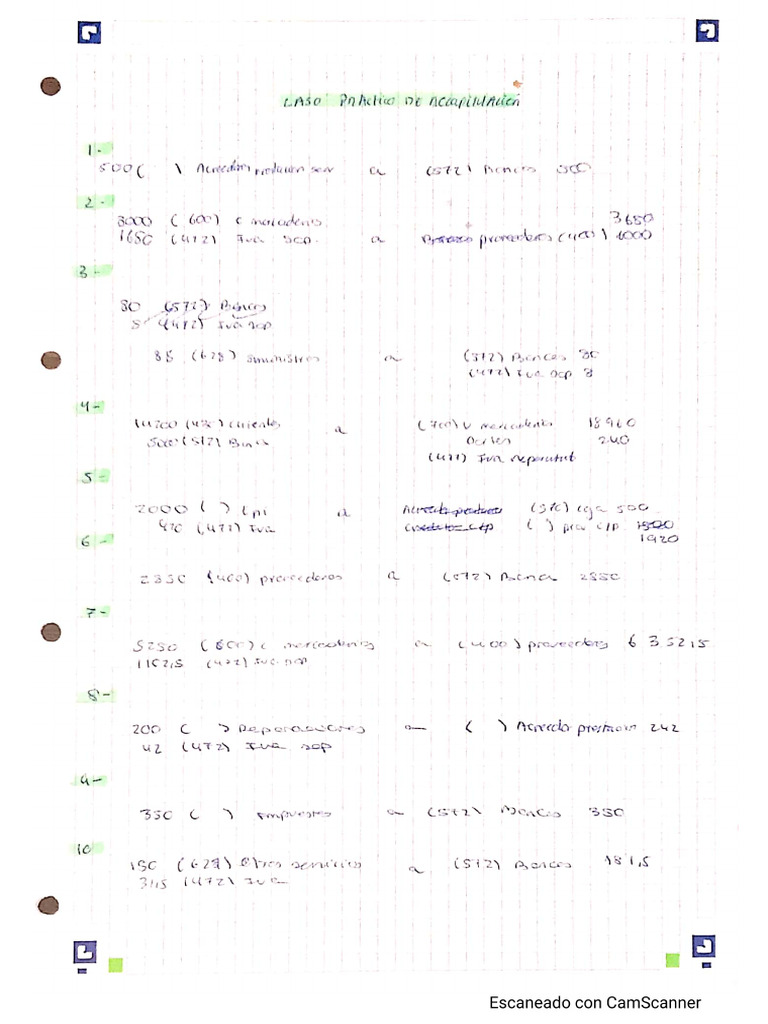 CASO PRÁCTICO DE RECOPILACIÓN
1-
500 ( ) Acreedores a (572) Bancos 500
2-
3000 (600) C mercaderías 3650
1650 (472) Iva sop. a proveedores (400)
3-
80 (572) Bancos
8 (472) Iva sop
88 (628) suministros a (572) Bancos 80
(472) Iva sop 8
4-
(430) clientes a (700) V mercaderías 18960
5000 (572) Banco 240
(477) Iva repercutit
5-
2000 ( ) a (570) caja 500
420 (472) Iva ( ) prov c/p
1920
6-
2350 (400) proveedores a (572) Banco 2350
7-
5250 (600) C mercaderías a (400) proveedores 6352,5
1102,5 (472) Iva sop
8-
200 ( ) Reparaciones a ( ) 242
42 (472) Iva sop
9-
350 ( ) Impuestos a (572) Bancos 350
10
150 (629) Otros servicios a (572) Bancos 181,5
31,5 (472) Iva
Escaneado con CamScanner